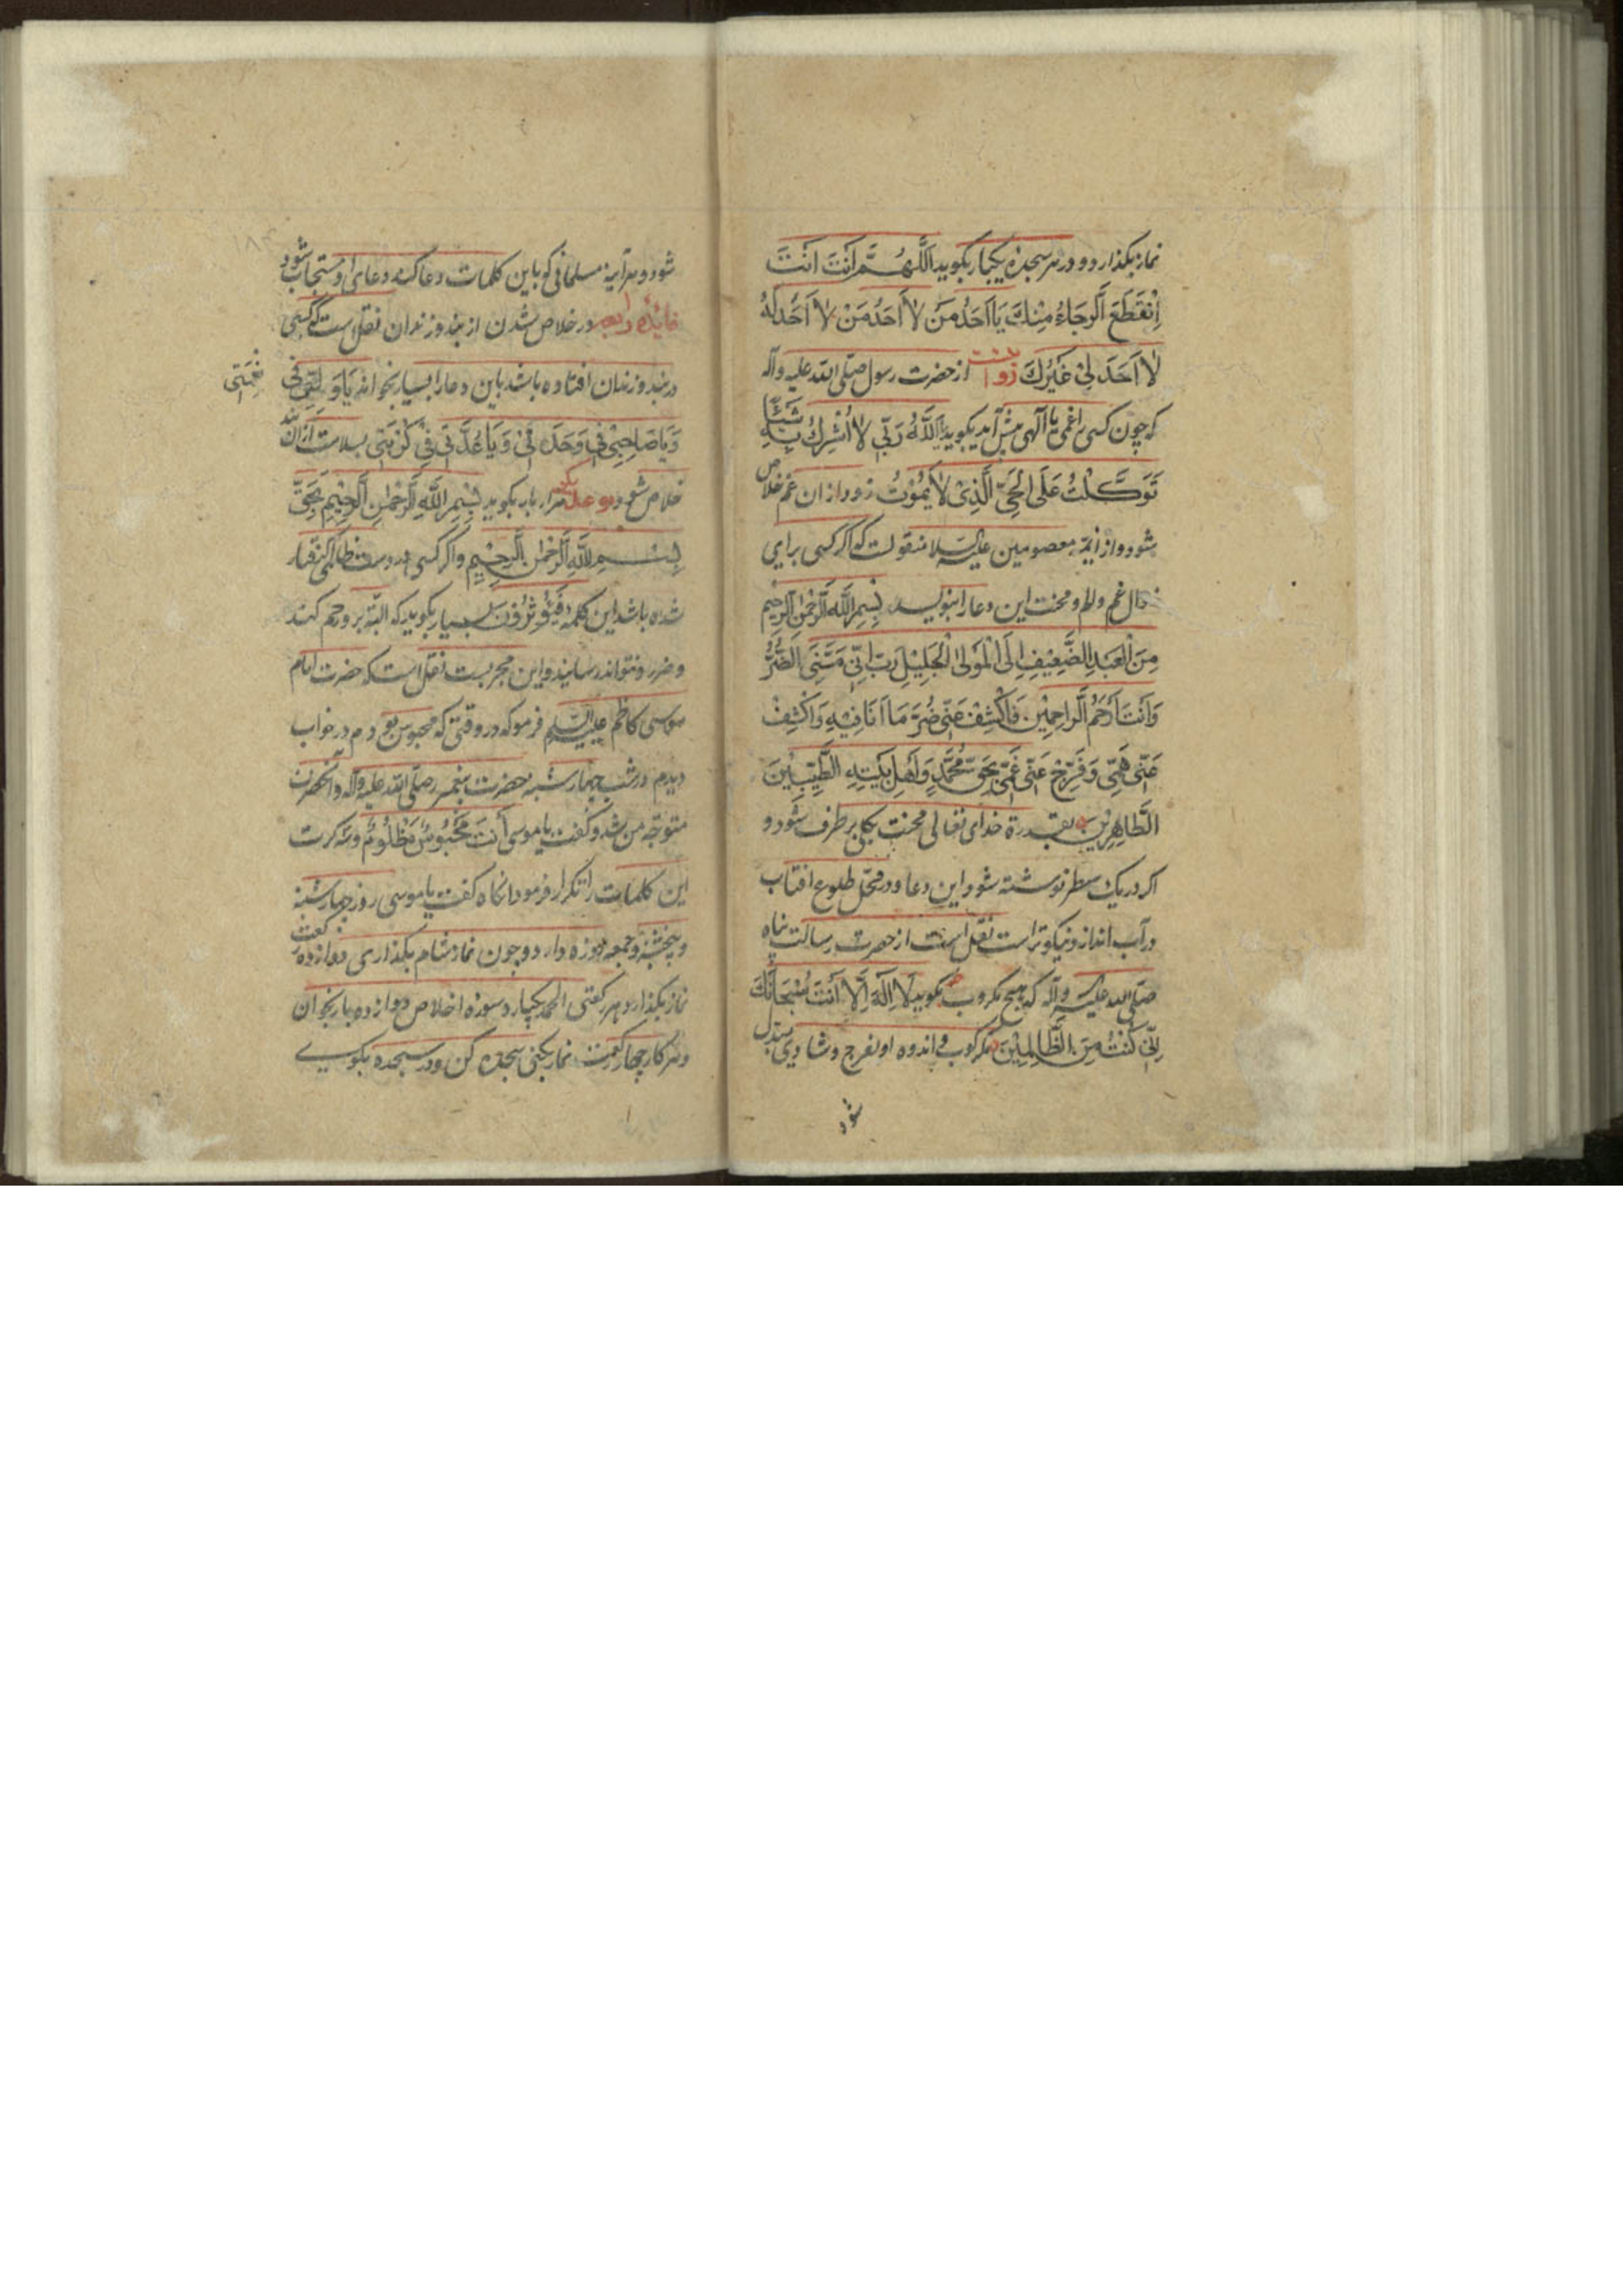 نماز بکذارد و در هر سجده یکبار بکوید اَللّٰهُمَّ اَنْتَ اَنْتَ
اِنْقَطَعَ الرَّجَاءُ مِنْكَ يَا اَحَدُ مَنْ لَا اَحَدُ مَنْ لَا اَحَدَ لَهُ
لَا اَحَدَ لِيْ غَيْرُكَ روایت از حضرت رسول صلّی الله علیه وآله
که چون کسی را غمی یا المی پیش آید بکوید اَللّٰهُ رَبِّيْ لَا اُشْرِكُ بِهِ شَيْئًا
تَوَكَّلْتُ عَلَى الْحَيِّ الَّذِيْ لَا يَمُوْتُ زود از ان غم خلاص
شود و از ائمّه معصومین علیه السلام منقولست که اکر کسی برای
زوال غم و الم و محنت این دعا را بنویسد بِسْمِ اللّٰهِ الرَّحْمٰنِ الرَّحِيْمِ
مِنَ الْعَبْدِ الضَّعِيْفِ اِلَى الْمَوْلٰى الْجَلِيْلِ رَبِّ اِنِّيْ مَسَّنِيَ الضُّرُّ
وَاَنْتَ اَرْحَمُ الرَّاحِمِيْنَ فَاكْشِفْ عَنِّيْ ضُرَّ مَا اَنَا فِيْهِ وَاكْشِفْ
عَنِّيْ هَمِّيْ وَفَرِّجْ عَنِّيْ غَمِّيْ بِحَقِّ مُحَمَّدٍ وَاَهْلِ بَيْتِهِ الطَّيِّبِيْنَ
الطَّاهِرِيْنَ بقدرة خدای تعالی محنت بکلی برطرف شود و
اکر در یک سطر نوشته شود این دعا و در محل طلوع افتاب
در آب اندازد نیکوتر است نقل است از حضرت رسالت پناه
صلّی الله علیه وآله که هیچ مکروب نکوید لَا اِلٰهَ اِلَّا اَنْتَ سُبْحَانَكَ
اِنِّيْ كُنْتُ مِنَ الظَّالِمِيْنَ مکر کرب و اندوه او بفرج و شادی مبدل
شود
شود و هر آینه مسلمانی کو باین کلمات دعا کند دعای او مستجاب شود
فایده رابعه در خلاص شدن از بند و زندان نقل است که کسی
در بند و زندان افتاده باشد باین دعا را بسیار بخواند يَا وَلِيِّيْ فِيْ نِعْمَتِيْ
وَيَا صَاحِبِيْ فِيْ وَحْدَتِيْ وَيَا عُدَّتِيْ فِيْ كُرْبَتِيْ بسلامت از ان بند
خلاص شود هزار بار بکوید بِسْمِ اللّٰهِ الرَّحْمٰنِ الرَّحِيْمِ بِحَقِّ
بِسْمِ اللّٰهِ الرَّحْمٰنِ الرَّحِيْمِ واکر کسی در دست ظالمی کرفتار
شده باشد این کلمه بسیار بکوید که البته برو رحم کند
و ضرر و نتواند رسانید و این مجربست نقل است که حضرت امام
موسی کاظم علیه السلام فرمو که در وقتی که محبوس بودم در خواب
دیدم در شب چهارشنبه حضرت پیغمبر صلّی الله علیه وآله و آنحضرت
متوجه من شد و کفت یا موسی اَنْتَ مَحْبُوْسٌ مَظْلُوْمٌ و سه کرت
این کلمات را تکرار فرمود انکاه کفت یا موسی روز چهارشنبه
و پنجشنبه و جمعه روزه دار و چون نماز شام بکذاری دوازده رکعت
نماز بکذار و هر رکعتی الحمد یکبار و سوره اخلاص دوازده بار بخوان
و هر کار چهار رکعت نماز بکنی سجده کن و در سجده بکوی